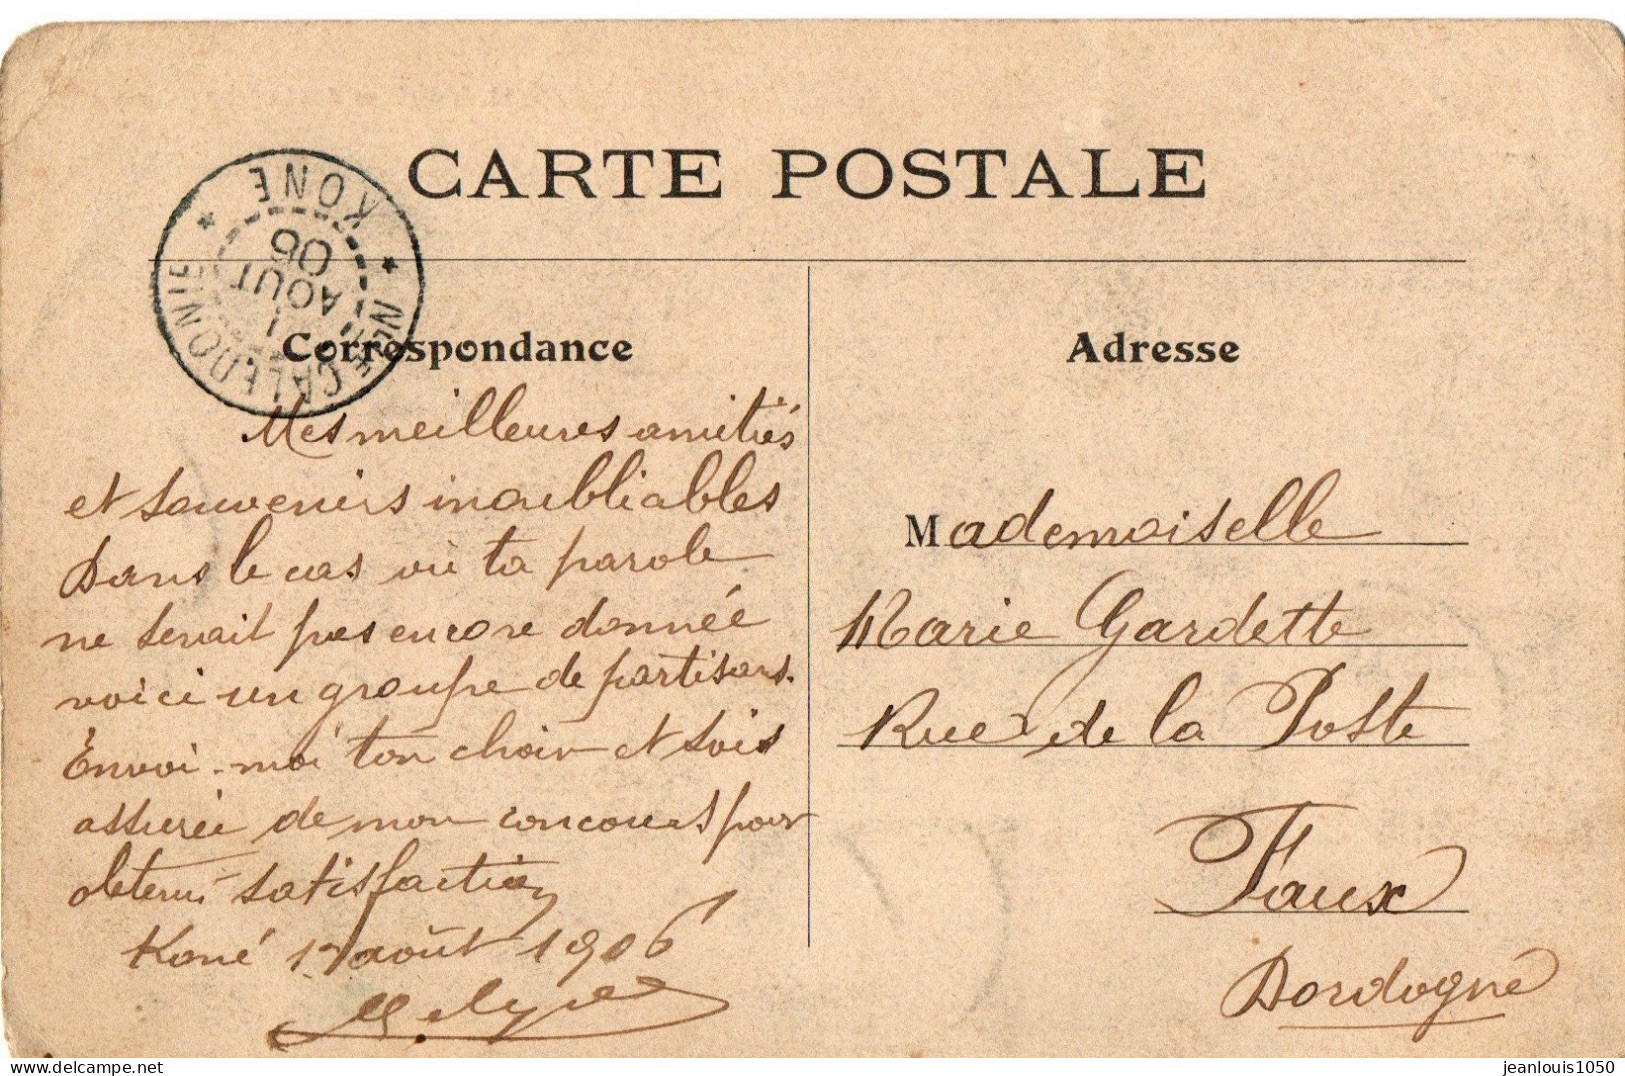 CARTE POSTALE
Nlle CALEDONIE
KONE
AOUT
06
Correspondance
Adresse
Mes meilleures amitiés
et souvenirs inoubliables
Dans le cas où ta parole
ne serait pas encore donnée
voici un groupe de partisans.
Envoi-moi ton choix et sois
assurée de mon concours pour
obtenir satisfaction
Koné 1er août 1906
Mademoiselle
Marie Gardette
Rue de la Poste
Faux
Dordogne
jeanlouis1050